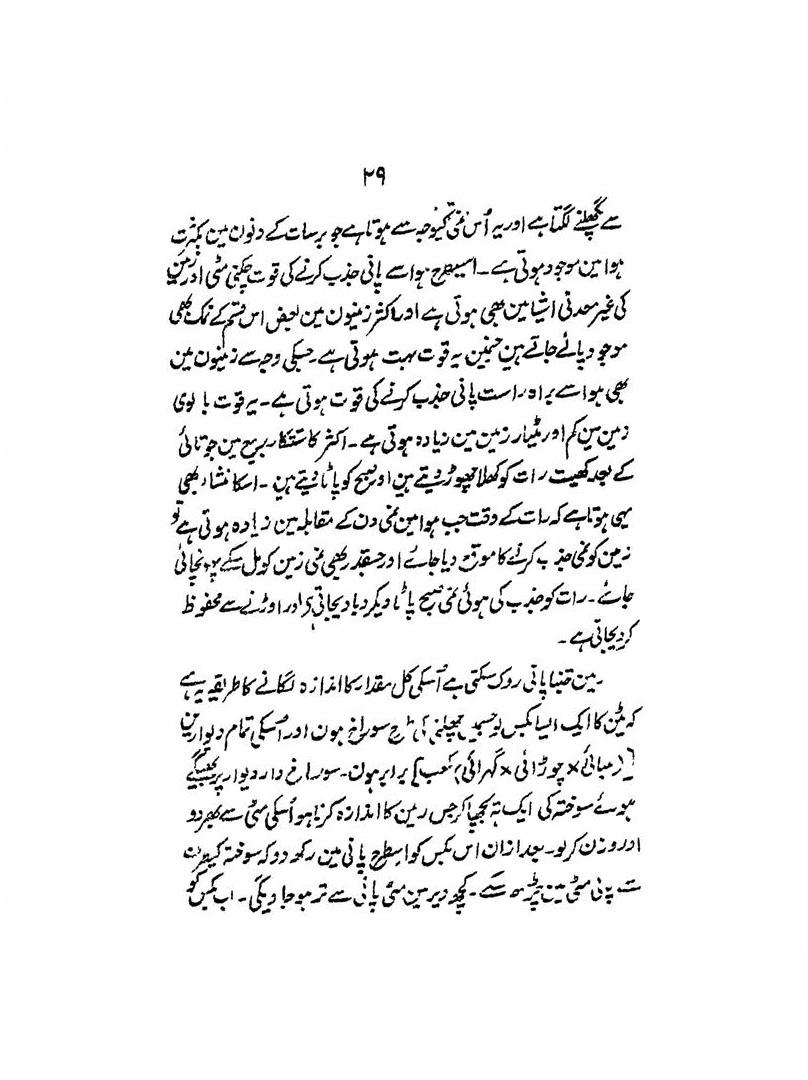 ۲۹
سے پگھلنے لگتا ہے اور یہ اُس نمی کیوجہ سے ہوتا ہے جو برسات کے دنون مین بکثرت
ہوا مین موجود ہوتی ہے ۔ اسیطرح ہوا سے پانی جذب کرنے کی قوت چکنی مٹی اور زمین
کی غیر معدنی اشیا مین بھی ہوتی ہے اور اکثر زمینون مین بعض اس قسم کے نمک بھی
موجود پائے جاتے ہین جنمین یہ قوت بہت ہوتی ہے ۔ جسکی وجہ سے زمینون مین
بھی ہوا سے براہ راست پانی جذب کرنے کی قوت ہوتی ہے ۔ یہ قوت بالوی
زمین مین کم اور مٹیار زمین مین زیادہ ہوتی ہے ۔ اکثر کاشتکار ربیع مین جوتائی
کے بعد کھیت رات کو کھلا چھوڑ دیتے ہین اور صبح کو پاٹا دیتے ہین ۔ اسکا منشاء بھی
یہی ہوتا ہے کہ رات کے وقت جب ہوا مین نمی دن کے مقابلہ مین زیادہ ہوتی ہے تو
زمین کو نمی جذب کرنے کا موقع دیا جائے اور جسقدر بھی نمی زمین کو مل سکے پہونچائی
جائے ۔ رات کو جذب کی ہوئی نمی صبح پاٹا دیکر دبا دیجاتی ہے اور اوڑنے سے محفوظ
کر دیجاتی ہے ۔
مین جتنا پانی روک سکتی ہے اُسکی کل مقدار کا اندازہ لگانے کا طریقہ یہ ہے
کہ ٹین کا ایک ایسا بکس لو جسمین چھلنی سوراخ ہون اور اُسکی تمام دیوارین
لمبائی × چوڑائی × گہرائی مکعب کے برابر ہون ۔ سوراخ دار دیوار پر بھیگے
ہوئے سوختہ کی ایک تہ بچھا کر جس زمین کا اندازہ کرنا ہو اُسکی مٹی سے بھر دو
اور وزن کر لو ۔ بعد ازان اس بکس کو اسطرح پانی مین رکھ دو کہ سوختہ کیطرف
سے پانی مٹی مین چڑھ سکے ۔ کچھ دیر مین مٹی پانی سے تر ہو جاویگی ۔ اب بکس کو